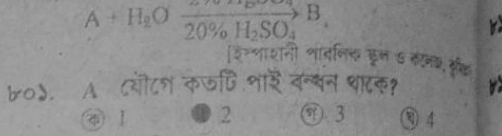 A + H₂O 2% HgSO₄ / 20% H₂SO₄ → B
[ইস্পাহানী পাবলিক স্কুল ও কলেজ,
৮০১. A যৌগে কতটি পাই বন্ধন থাকে?
ক 1 2 গ 3 ঘ 4